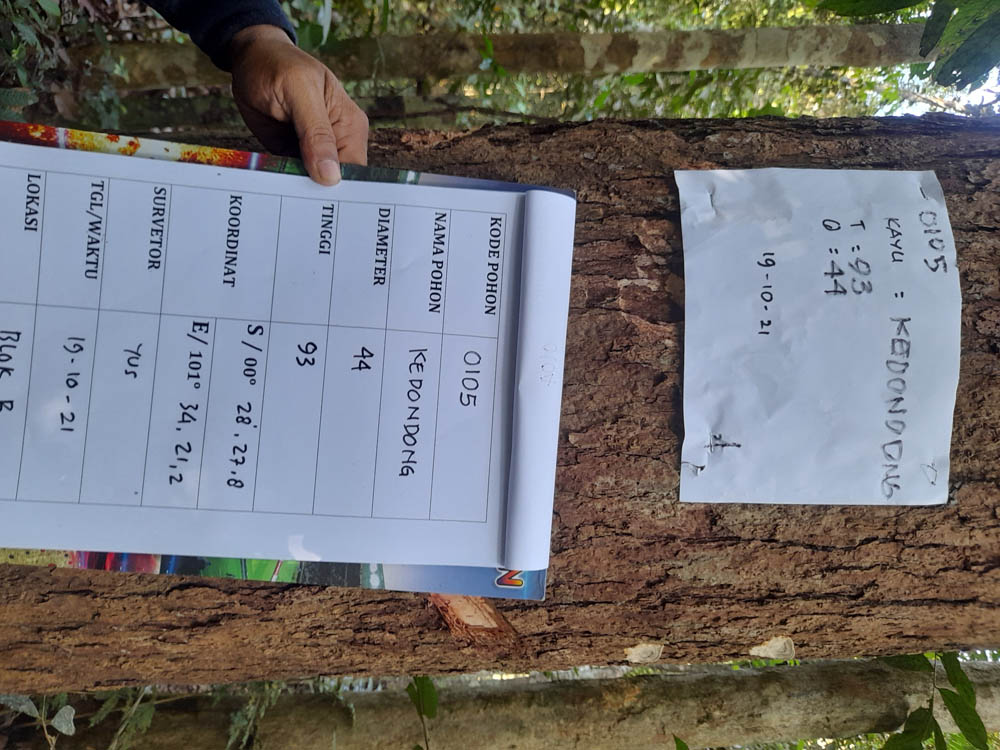 0105
KAYU : KEDONDONG
T : 93
Ø : 44
19-10-21
N
KODE POHON 0105
NAMA POHON KEDONDONG
DIAMETER 44
TINGGI 93
KOORDINAT S / 00° 28', 27,8
E/ 101° 34, 21,2
SURVETOR YUS
TGL/WAKTU 19-10-21
LOKASI BLOK B